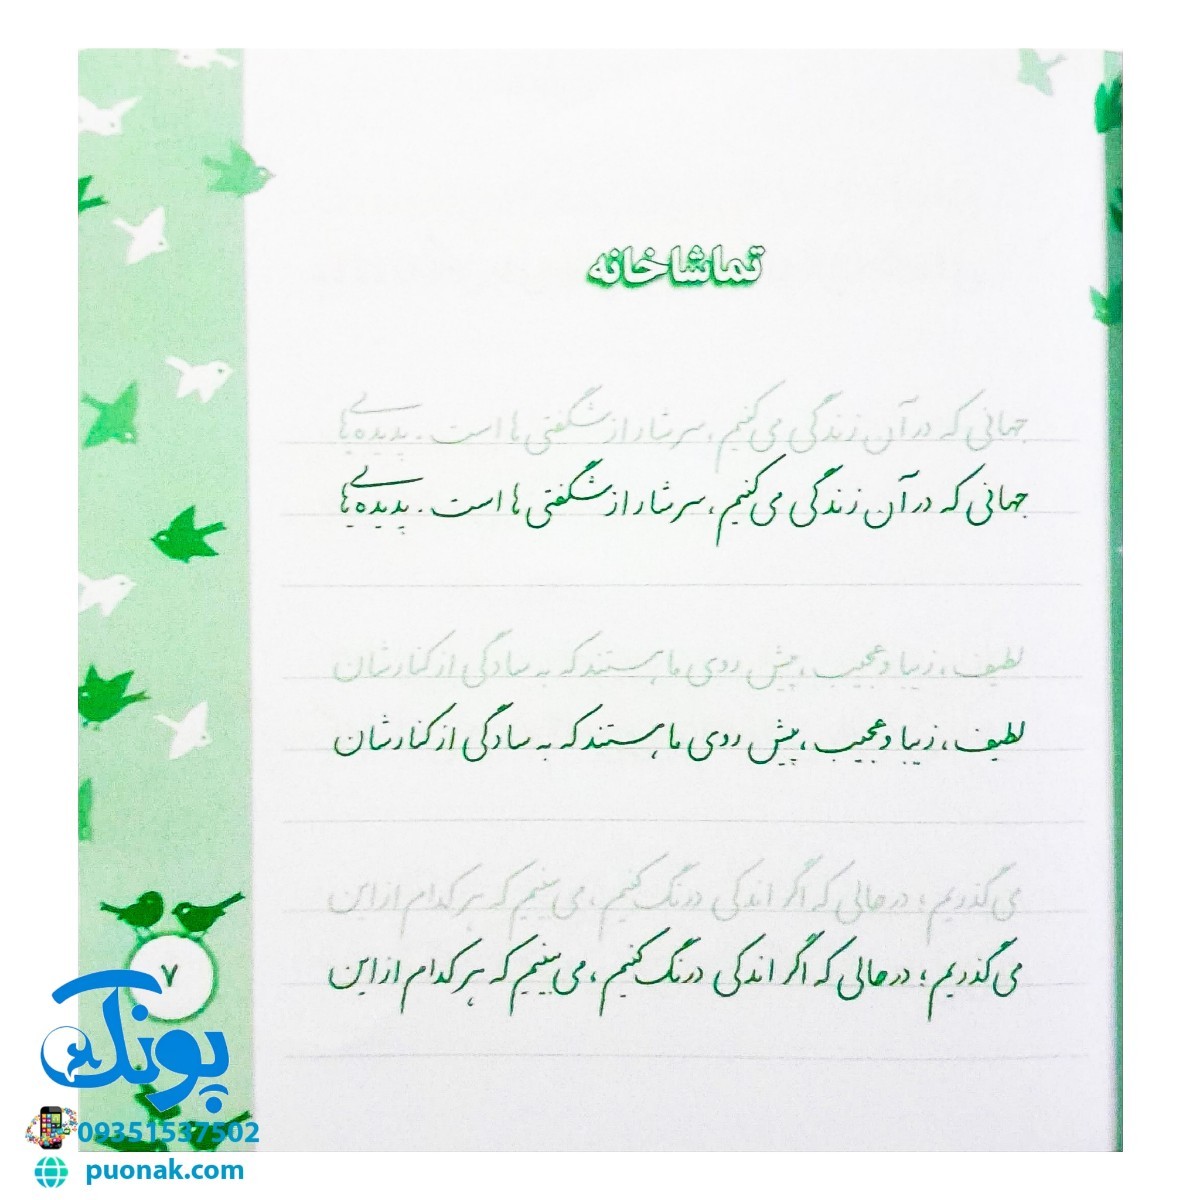 تماشاخانه
جهانی که در آن زندگی می‌کنیم، سرشار از شگفتی‌ها است. پدیده‌هایی
جهانی که در آن زندگی می‌کنیم، سرشار از شگفتی‌ها است. پدیده‌هایی
لطیف، زیبا و عجیب، پیش روی ما هستند که به سادگی از کنارشان
لطیف، زیبا و عجیب، پیش روی ما هستند که به سادگی از کنارشان
می‌گذریم؛ در حالی که اگر اندکی درنگ کنیم، می‌بینیم که هر کدام از این
می‌گذریم؛ در حالی که اگر اندکی درنگ کنیم، می‌بینیم که هر کدام از این
۷
پونک
09351537502
puonak.com